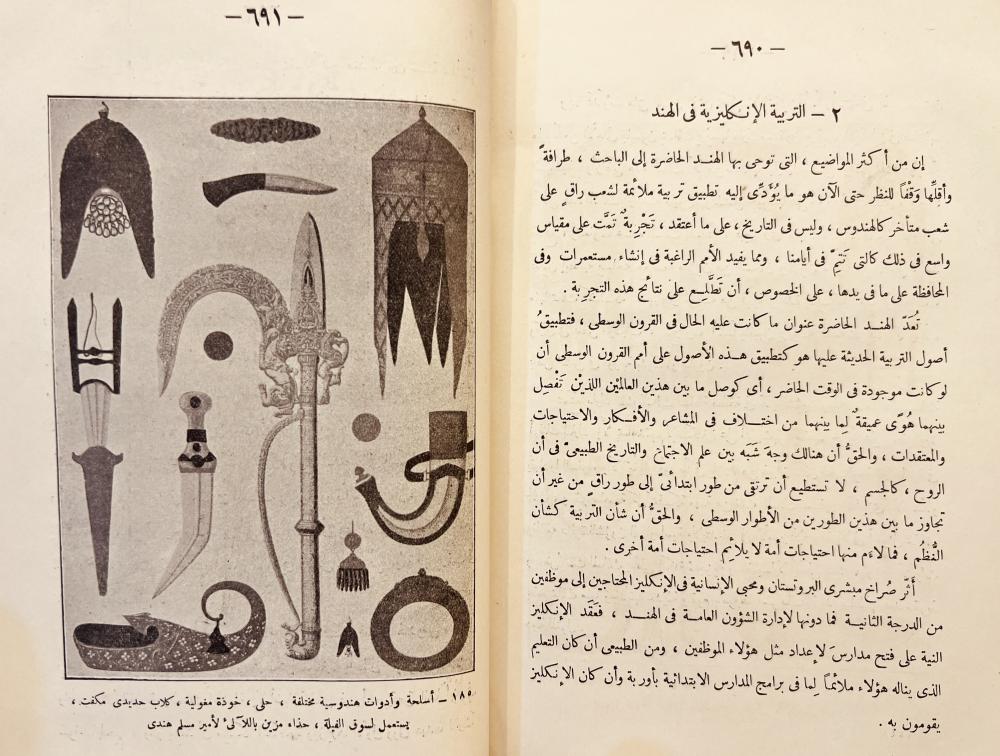 — ٦٩٠ —
٢ — التربية الإنكليزية فى الهند
إن من أكثر المواضيع ، التى توحى بها الهند الحاضرة إلى الباحث ، طرافةً
وأقلِّها وَقْفاً للنظر حتى الآن هو ما يُؤَدِّى إليه تطبيق تربية ملائمة لشعب راقٍ على
شعب متأخر كالهندوس ، وليس فى التاريخ ، على ما أعتقد ، تَجْرِبةٌ تَمَّت على مقياس
واسع فى ذلك كالتى تَتِمّ فى أيامنا ، ومما يفيد الأمم الراغبة فى إنشاء مستعمرات وفى
المحافظة على ما فى يدها ، على الخصوص ، أن تَطَّلِع على نتائج هذه التجرِبة .
تُعَدّ الهند الحاضرة عنوان ما كانت عليه الحال فى القرون الوسطى ، فتطبيقُ
أصول التربية الحديثة عليها هو كتطبيق هذه الأصول على أمم القرون الوسطى أن
لو كانت موجودة فى الوقت الحاضر ، أى كوصل ما بين هذين العالمَيْن اللذيْن تَفْصِل
بينهما هُوًى عميقةٌ لِما بينهما من اختلاف فى المشاعر والأفكار والاحتياجات
والمعتقدات ، والحقُّ أن هنالك وجهَ شَبَه بين علم الاجتماع والتاريخ الطبيعىّ فى أن
الروح ، كالجسم ، لا تستطيع أن ترتقى من طور ابتدائىّ إلى طور راقٍ من غير أن
تجاوز ما بين هذين الطورين من الأطوار الوسطى ، والحقُّ أن شأن التربية كشأن
النُّظُم ، فما لاءَم منها احتياجات أمة لا يلائِم احتياجات أمة أخرى .
أَثَّر صُراخ مبشرى البروتستان ومحبى الإنسانية فى الإنكليز المحتاجين إلى موظفين
من الدرجة الثانية فما دونها لإدارة الشؤون العامة فى الهند ، فعَقَد الإنكليز
النية على فتح مدارسَ لإعداد مثل هؤلاء الموظفين ، ومن الطبيعى أن كان التعليم
الذى يناله هؤلاء ملائماً لِما فى برامج المدارس الابتدائية بأوربة وأن كان الإنكليز
يقومون به .
— ٦٩١ —
١٨٥ — أسلحة وأدوات هندوسية مختلفة ، حلى ، خوذة مغولية ، كلاب حديدى مكفت ،
يستعمل لسوق الفيلة ، حذاء مزين باللآلئ لأمير مسلم هندى